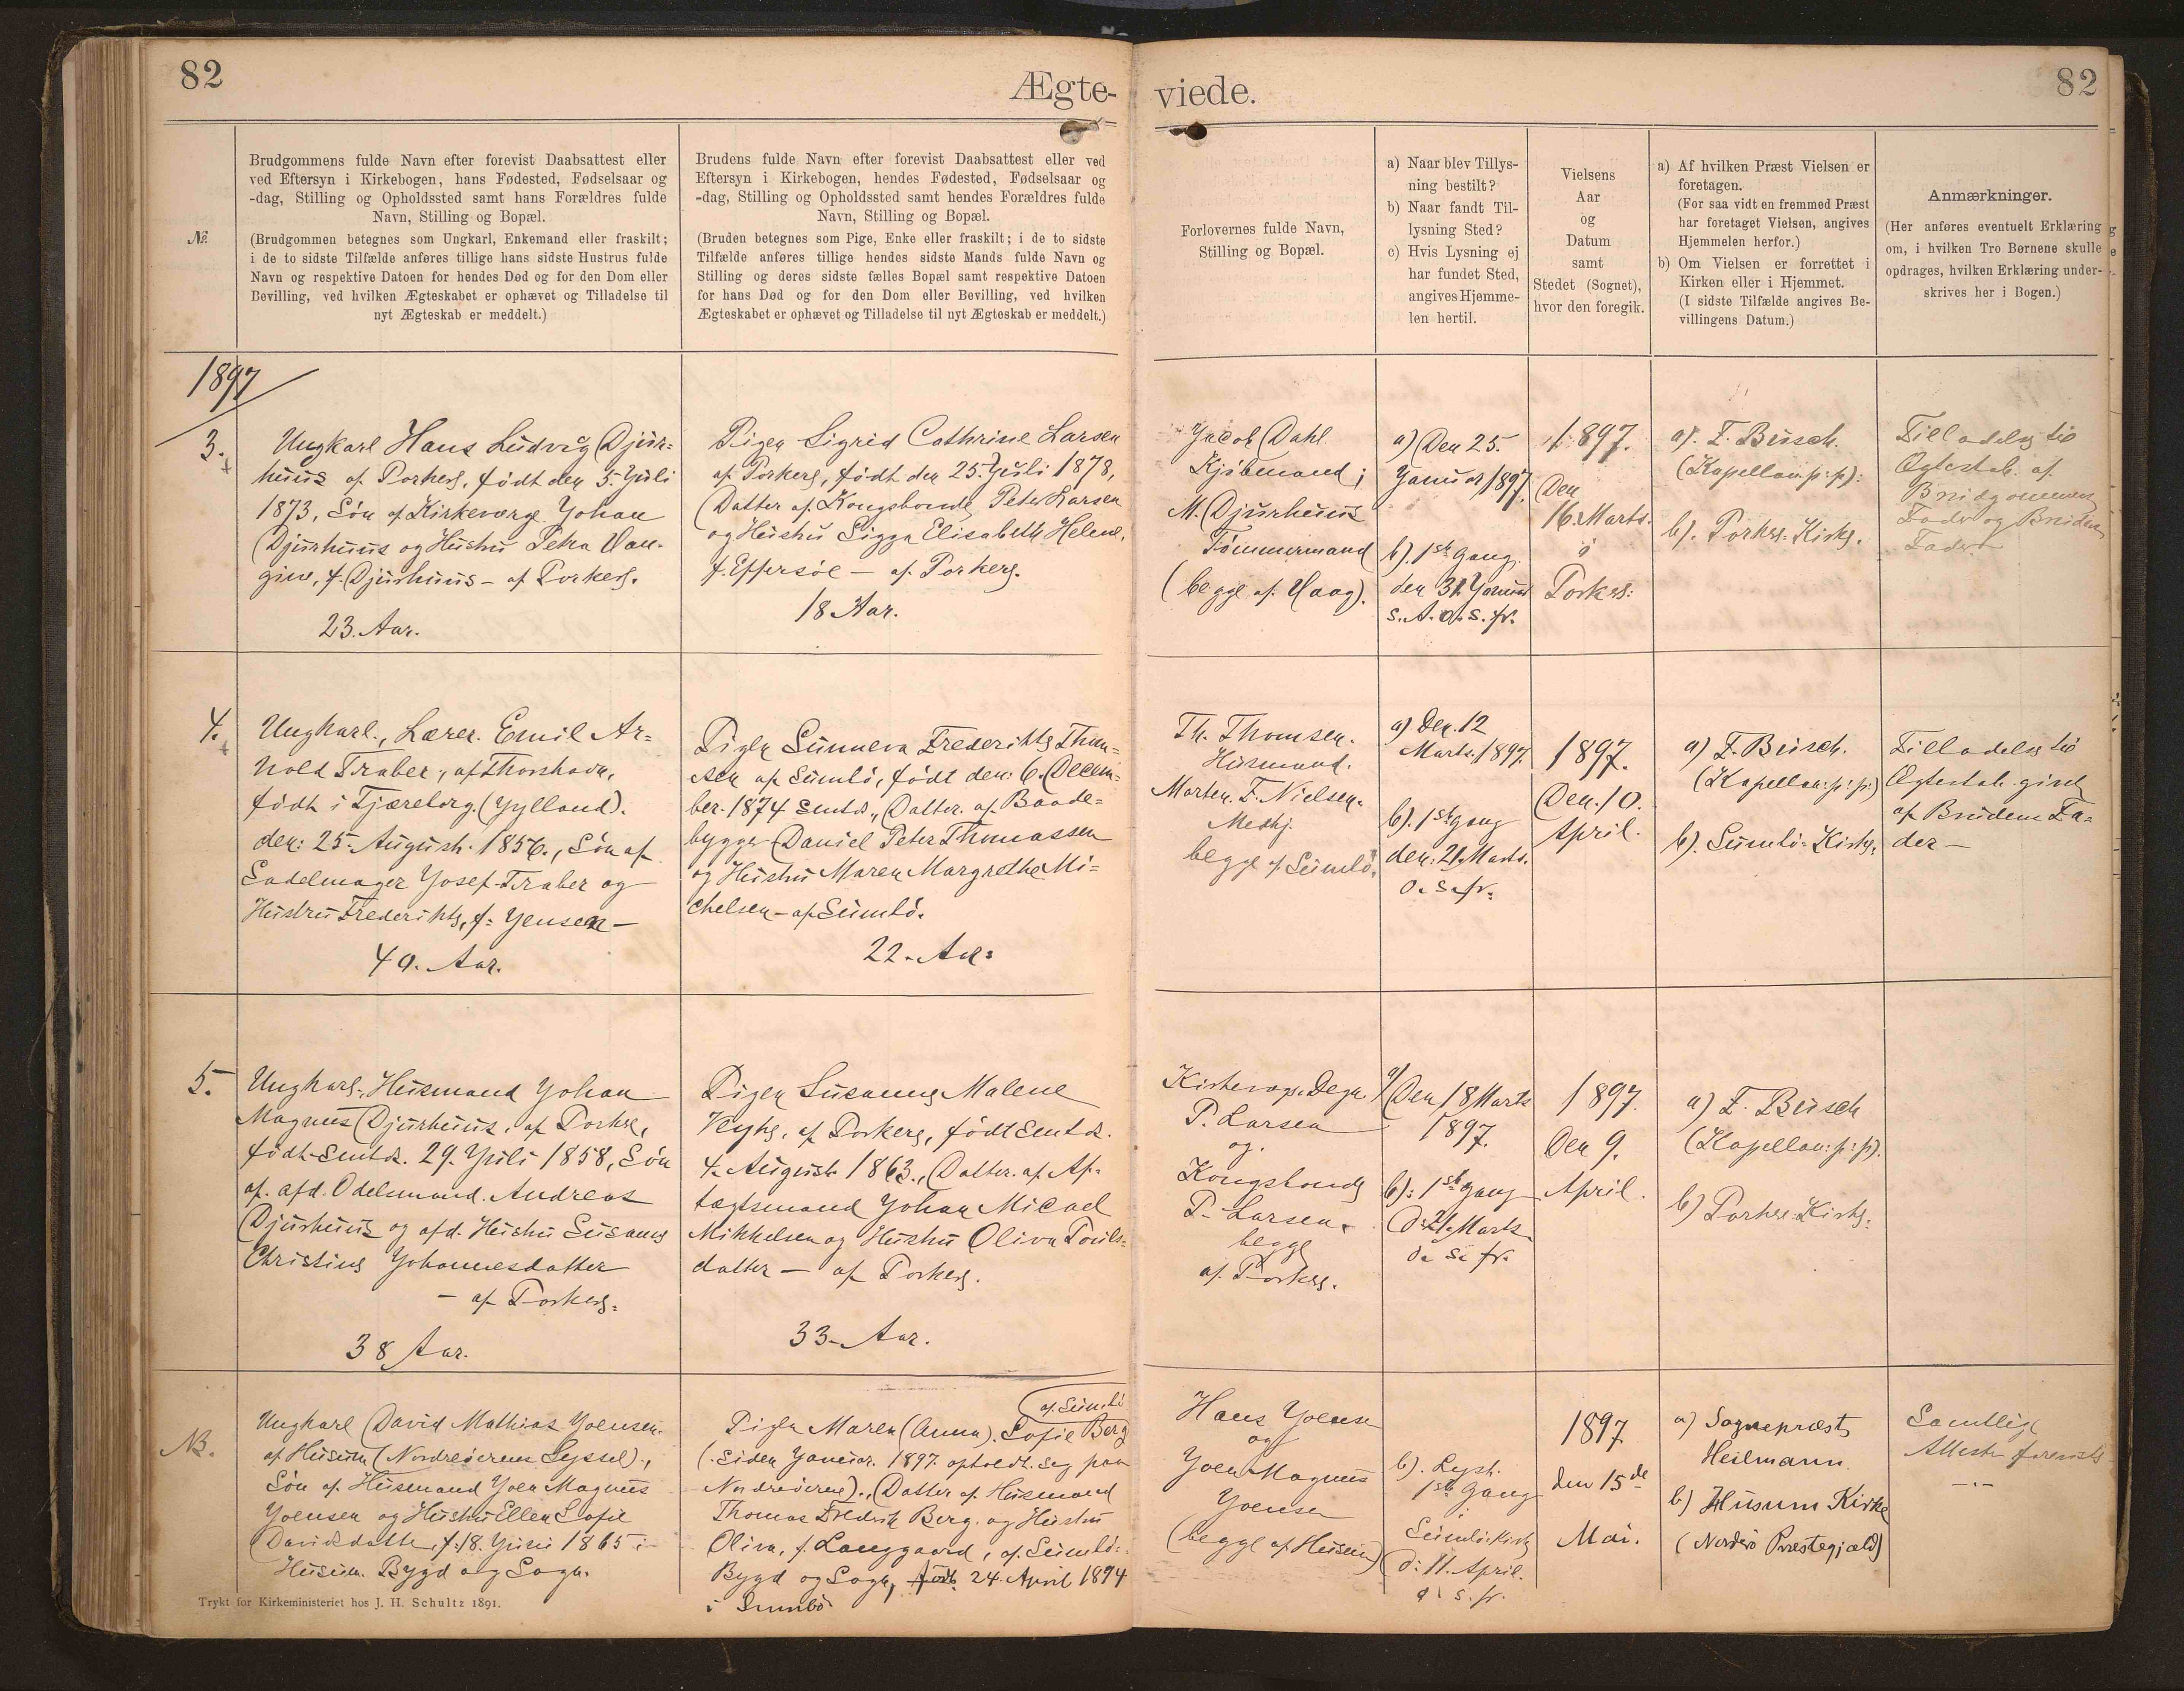 82
Ægte-
viede.
82
№.
Brudgommens fulde Navn efter forevist Daabsattest eller
ved Eftersyn i Kirkebogen, hans Fødested, Fødselsaar og
-dag, Stilling og Opholdssted samt hans Forældres fulde
Navn, Stilling og Bopæl.
(Brudgommen betegnes som Ungkarl, Enkemand eller fraskilt;
i de to sidste Tilfælde anføres tillige hans sidste Hustrus fulde
Navn og respektive Datoen for hendes Død og for den Dom eller
Bevilling, ved hvilken Ægteskabet er ophævet og Tilladelse til
nyt Ægteskab er meddelt.)
Brudens fulde Navn efter forevist Daabsattest eller ved
Eftersyn i Kirkebogen, hendes Fødested, Fødselsaar og
-dag, Stilling og Opholdssted samt hendes Forældres fulde
Navn, Stilling og Bopæl.
(Bruden betegnes som Pige, Enke eller fraskilt; i de to sidste
Tilfælde anføres tillige hendes sidste Mands fulde Navn og
Stilling og deres sidste fælles Bopæl samt respektive Datoen
for hans Død og for den Dom eller Bevilling, ved hvilken
Ægteskabet er ophævet og Tilladelse til nyt Ægteskab er meddelt.)
Forlovernes fulde Navn,
Stilling og Bopæl.
a) Naar blev Tillys-
ning bestilt?
b) Naar fandt Til-
lysning Sted?
c) Hvis Lysning ej
har fundet Sted,
angives Hjemme-
len hertil.
Vielsens
Aar
og
Datum
samt
Stedet (Sognet),
hvor den foregik.
a) Af hvilken Præst Vielsen er
foretagen.
(For saa vidt en fremmed Præst
har foretaget Vielsen, angives
Hjemmelen herfor.)
b) Om Vielsen er forrettet i
Kirken eller i Hjemmet.
(I sidste Tilfælde angives Be-
villingens Datum.)
Anmærkninger.
(Her anføres eventuelt Erklæring
om, i hvilken Tro Børnene skulle
opdrages, hvilken Erklæring under-
skrives her i Bogen.)
1897
3.
Ungkarl Hans Ludvig Djur=
huus af Porkere, født den 5. Juli
1873, Søn af Kirkeværge Johan
Djurhuus og Hustru Petra Van-
gine, f. Djurhuus - af Porkere.
23. Aar.
Pigen Sigrid Cathrine Larsen
af Porkere, født den 25. Juli 1878,
Datter af Kongsbonde Peter Larsen
og Hustru Sigga Elisabeth Helene,
f. Effersøe - af Porkere.
18 Aar.
Jacob Dahl
Kjøbmand;
M. Djurhuus
Tømmermand
(begge af Vaag).
a) Den 25.
Januar 1897.
b). 1ste Gang
den 31. Januar
s. A. o. s. fr.
1897.
Den
16. Marts.
i
Porkere:
a). F. Busch.
(Kapellan p: p):
b). Porkere Kirke.
Tilladelse til
Ægteskab af
Brudgommens
Fader og Brudens
Fader
4.
Ungkarl., Lærer. Emil Ar=
nold Traber, af Thorshavn,
født i Tjæreborg. (Jylland).
den: 25. August. 1856., Søn af
Sadelmager Josef Traber og
Hustru Frederikke, f: Jensen -
40. Aar.
Pigen Sunneva Frederikke Thom=
sen af Sumbø, født den: 6. Decem=
ber. 1874 smtds., Datter. af Baade=
bygger Daniel Peter Thomassen
og Hustru Maren Margrethe Mi=
chelsen - af Sumbø.
22. Aar:
Th. Thomsen.
Husmand.
Morten. F. Nielsen.
begge af Sumbø.
a) Den. 12
Marts. 1897.
b). 1ste Gang
den: 21. Marts.
o. s. fr.
1897.
Den. 10.
April.
a) F. Busch.
(Kapellan: p: p:)
b). Sumbø= Kirke.
Tilladelse til
Ægteskab givet
af Brudens Fa=
der -
5.
Ungkarl, Husmand Johan
Magnus Djurhuus, af Porkere,
født smtds. 29. Juli 1858, Søn
af afd. Odelsmand. Andreas
Djurhuus og afd. Hustru Susanne
Christine Johannesdatter
- af Porkere.
38 Aar.
Pigen Susanne Malene
af Porkere, født smtds.
4. August 1863., Datter. af Af-
tægtsmand Johan Micael
Mikkelsen og Hustru Oliva Pouls=
datter - af Porkere.
33. Aar.
P. Larsen
og
Kongsbonde
P. Larsen.
begge
af Porkere.
a) Den 18 Marts
1897.
b): 1ste Gang
d: 21. Marts
o. s. fr.
1897.
Den 9.
April.
a) F. Busch
(Kapellan: p: p).
b) Porkere Kirke:
NB.
Ungkarl David Mathias Joensen.
af Husum (Nordreøernes Syssel).,
Søn af Husmand Joen Magnus
Joensen og Hustru Ellen Sofie
Davidsdatter, f: 18. Juni 1865 i
Husum. Bygd og Sogn.
af Sumbø
Pigen Maren (Anna). Sofie Berg
(siden Januar. 1897. opholdt sig paa
Nordreøerne)., Datter af Husmand
Thomas Fredrik Berg. og Hustru
Oliva, f. Langgaard, af Sumbø=
Bygd og Sogn, født 24. April 1874
i Sumbø
Hans Joensen
og
Joen Magnus
Joensen
(begge af Husum)
b). Lyst.
1ste Gang
i
Sumbø Kirke
d: 11. April.
o. s. fr.
1897
den 15de
Mai.
a) Sognepræst
Heilmann
b) Husum Kirke
(Norderø Præstegjæld)
Samtlige
Attester forevist
Trykt for Kirkeministeriet hos J. H. Schultz 1891.